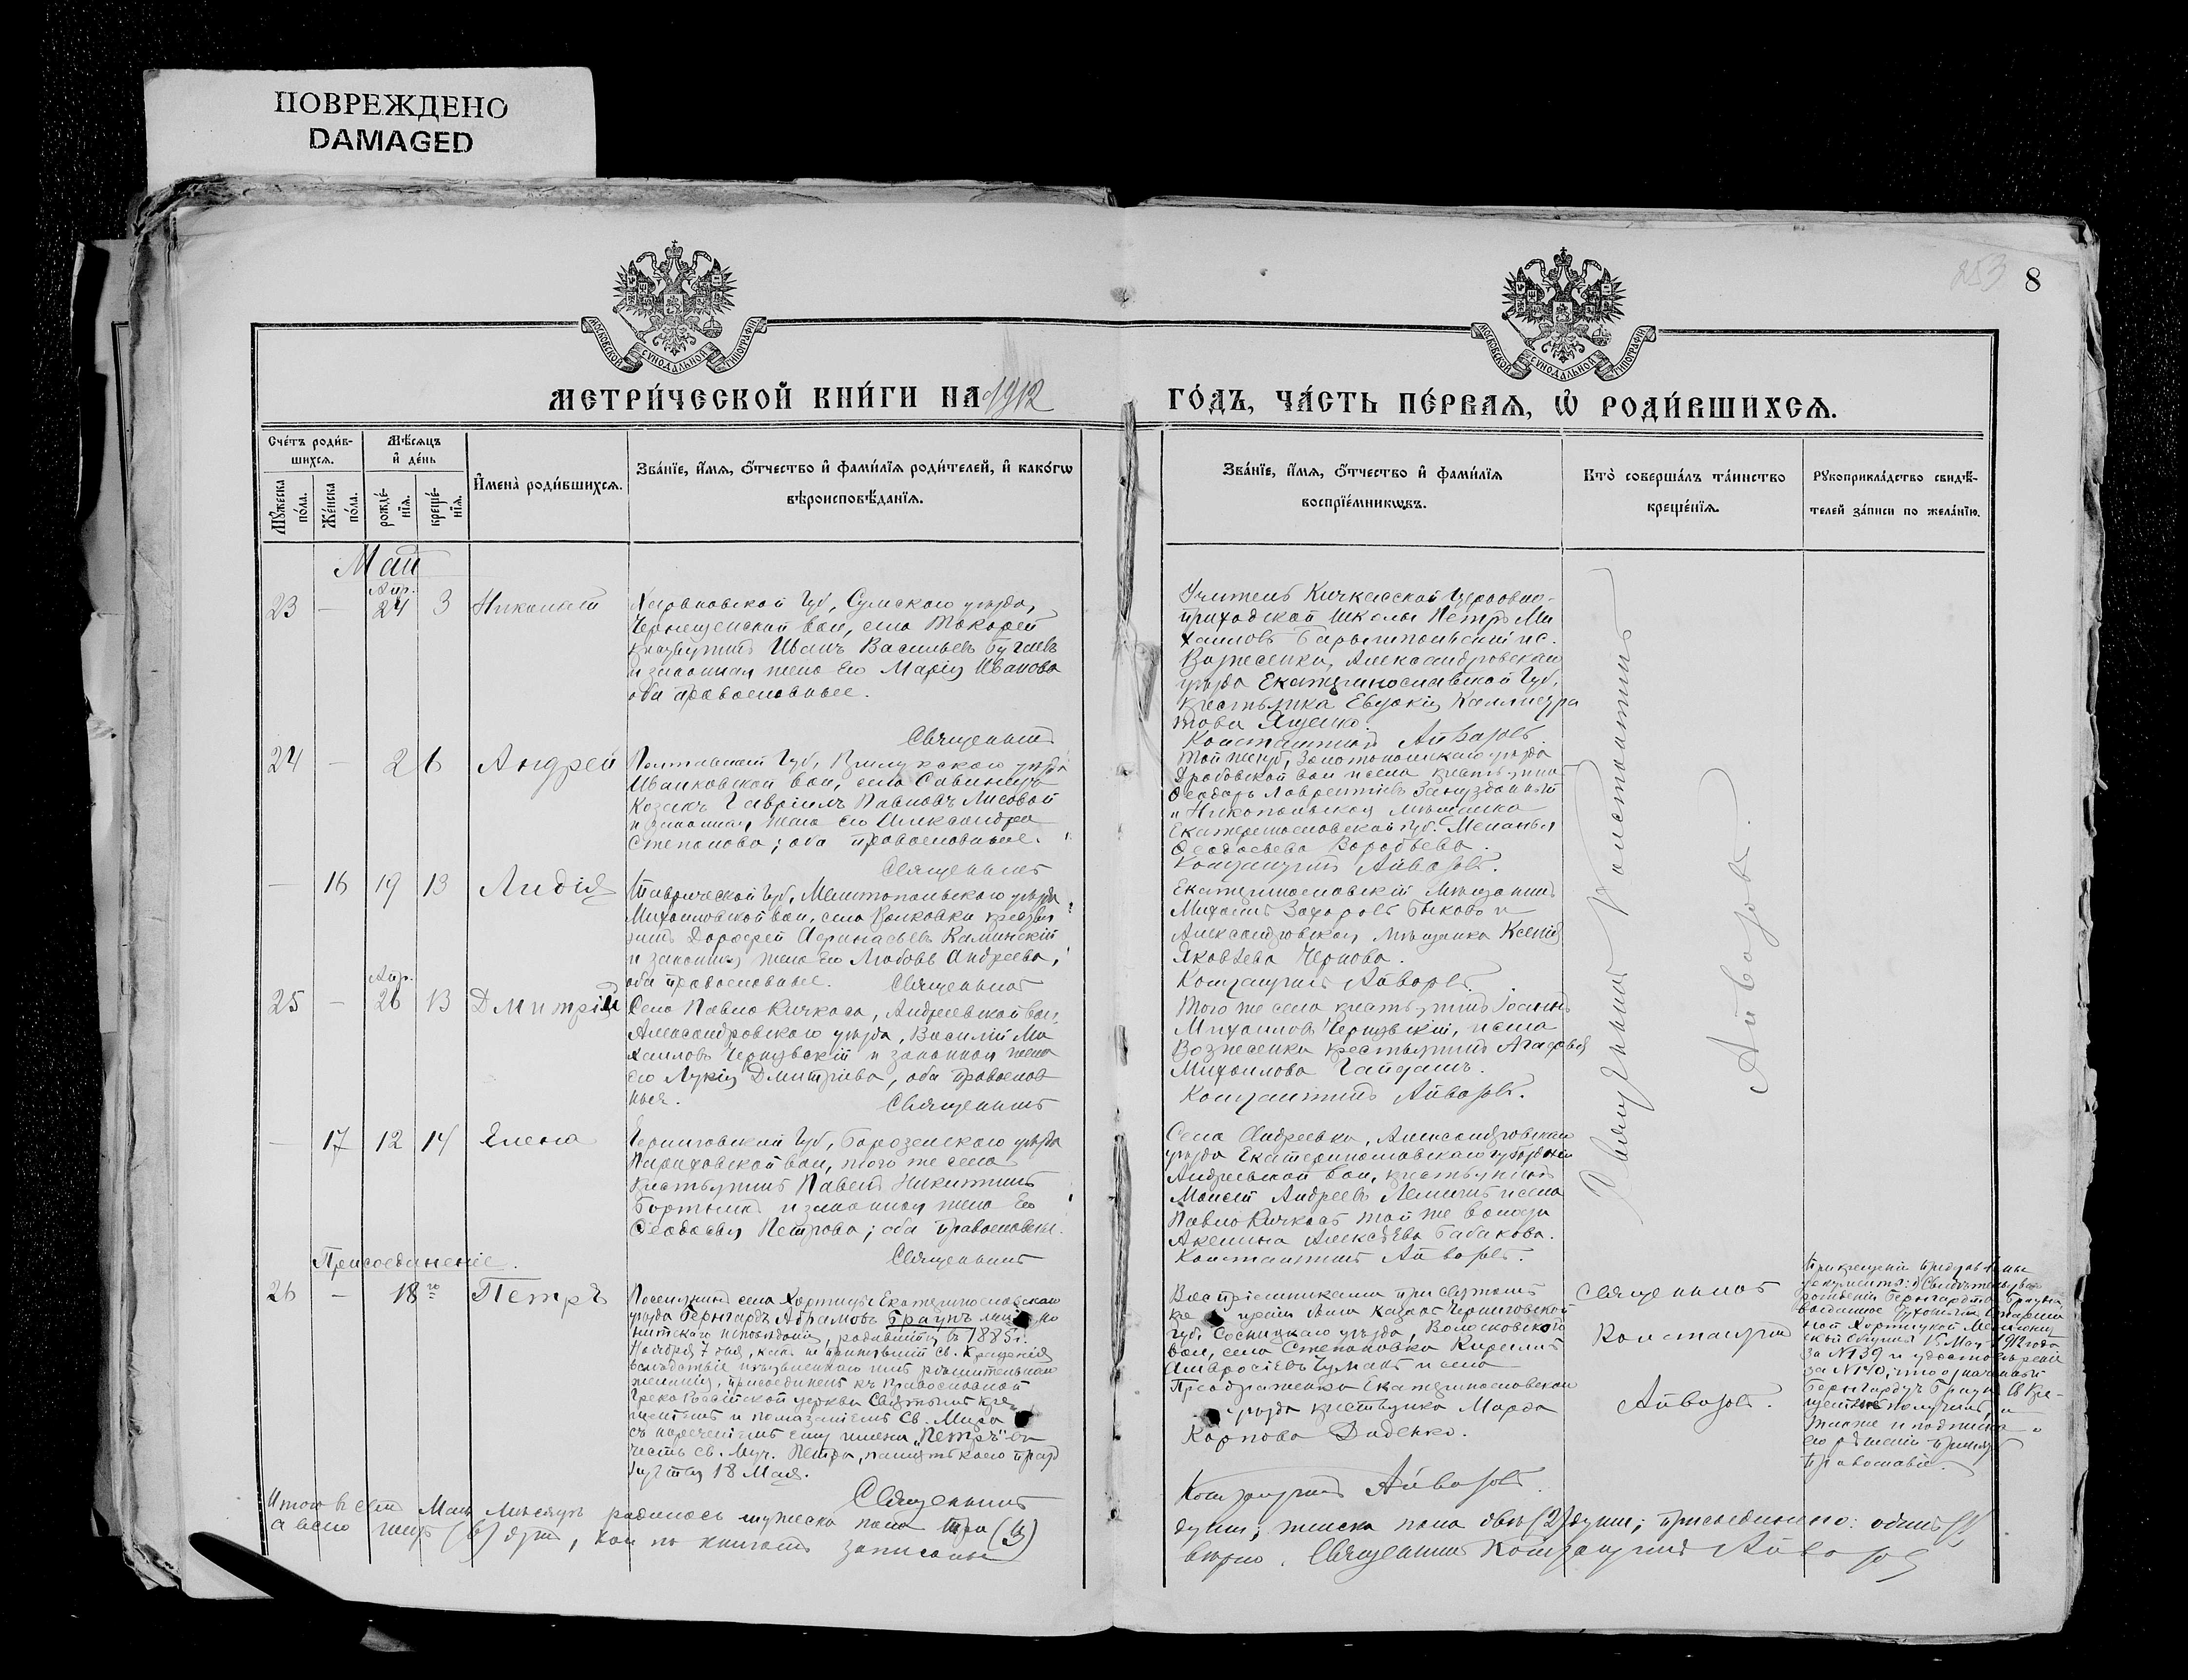 ПОВРЕЖДЕНО
DAMAGED
853 8
МОСКОВСКОЙ СѴНОДАЛЬНОЙ ТИПОГРАФІИ
МОСКОВСКОЙ СѴНОДАЛЬНОЙ ТИПОГРАФІИ
МЕТРИ́ЧЕСКОЙ КНИ́ГИ НА 1912
ГО́ДЪ, ЧА́СТЬ ПЕ́РВАЯ, Ѡ РОДИ́ВШИХСЯ.
Сче́тъ роди́в-
шихся.
Мѣ́сяцъ
и де́нь
Му́жеска по́ла.
Же́нска по́ла.
рожде́-
нїя.
креще́-
нїя.
Имена̀ роди́вшихся.
Зва́нїе, и́мя, о́тчество и фами́лїя роди́телей, и како́гѡ
вѣроисповѣ́данїя.
Зва́нїе, и́мя, о́тчество и фами́лїя
воспрїе́мникѡвъ.
Кто̀ соверша́лъ та́инство
креще́нїя.
Рукоприкла́дство свидѣ́-
телей за́писи по жела́нїю.
Май
Апр.
23 — 24 3 Николай
Харьковской Губ, Сумскаго уѣзда,
вол, села Токарей
крестьянинъ Иванъ Васильевъ Бугаевъ
и законная жена его Марія Иванова
оба православные.
Священникъ
Учитель Кичкасской церковно-
приходской школы Петръ Ми
хаиловъ и с.
Вознесенки, Александровскаго
уѣзда Екатеринославской Губ,
крестьянка Евдокія Каллистра
това Яценко.
Константинъ Айвазовъ.
24 — 2 6 Андрей
Полтавской Губ, Прилукскаго уѣзда
Иванковской вол, села Савинецъ
Козакъ Гавріилъ Павловъ Лисовой
и законная жена его Александра
Степанова; оба православные.
Священникъ
Той же губ, Золотоношскаго уѣзда
Дробовской вол и села крестьянинъ
Ѳеодоръ Лаврентіевъ
и Никопольская мѣщанка
Екатеринославской губ. Меланья
Ѳеодосьева Воробьева.
Константинъ Айвазовъ.
— 16 19 13 Лидія
Таврической Губ, Мелитопольскаго уѣзда
Михайловской вол, села Волковки крестья
нинъ Дороѳей Аѳанасьевъ Каминскій
и законная жена его Любовь Андреева,
оба православные. Священникъ
Екатеринославскій мѣщанинъ
Михаилъ Захаровъ Быковъ и
Александровская мѣщанка Ксенія
Яковлева Чернова.
Константинъ Айвазовъ.
Апр.
25 — 26 13 Дмитрій
Села Павло Кичкаса, Андреевской вол,
Александровскаго уѣзда, Василій Ми
хаиловъ Чернявскій и законная жена
его Лукія Дмитріева, оба православ
ные.
Священникъ
Того же села крестьянинъ Іоаннъ
Михаиловъ Чернявскій, и села
Вознесенки крестьянка Агафья
Михаилова Гайдашъ.
Константинъ Айвазовъ.
— 17 12 14 Елена
Черниговской Губ, уѣзда
вол, того же села
крестьянинъ Павелъ Никитинъ
и законная жена его
Ѳеодосья Петрова; оба православны.
Священникъ
Села Андреевки, Александровскаго
уѣзда Екатеринославской губерніи
Андреевской вол, крестьянинъ
Моисей Андреевъ и села
Павло Кичкасъ той же волости
Акелина Алексѣева Бабакова.
Константинъ Айвазовъ.
Священникъ Константинъ
Айвазовъ.
Присоединеніе.
26 — 18го Петръ
Поселянинъ села Хортицы Екатеринославскаго
уѣзда Бернгардъ Абрамовъ Браунъ менно
нитскаго исповѣданія, родившійся въ 1885 г.
Ноября 7 дня, какъ не принявшій Св. Крещенія
вслѣдствіе изъявленнаго имъ рѣшительнаго
желанія, присоединенъ къ православной
Греко-Россійской церкви Святымъ Кре
щеніемъ и помазаніемъ Св. Мѵра
съ нареченіемъ ему имени „Петръ" въ
честь Св. Муч. Петра, память коего празд
нуется 18 Мая.
Священникъ
Воспріемниками при святомъ
крещеніи были казакъ Черниговской
губ, Сосницкаго уѣзда, Волосковской
вол, села Степановки Кириллъ
Амвросіевъ Чумакъ и села
Преображенки Екатеринославскаго
уѣзда крестьянка Марѳа
Карпова Диденко.
Константинъ Айвазовъ.
Священникъ
Константинъ
Айвазовъ.
При крещеніи предъявлены
документы: Свидѣтельство о
рожденіи Бернгардта Брауна
выданное Духовнымъ Старшин
ой Хортицкой Меннонит
ской общины 15 Мая 1912 года
за № 139 и удостовѣреніе
за № 140, что означенный
Бернгардъ Браунъ Св. Кре-
щенія не получилъ, а
также и подписка о
его рѣшеніи принять
Православіе.
Итого въ семъ Маѣ мѣсяцѣ родилось мужеска пола три (3)
души; женска пола двѣ (2) души; присоединено: одинъ (1)
а всего шесть (6) душъ, кои по книгамъ записаны
вѣрно. Священникъ Константинъ Айвазовъ